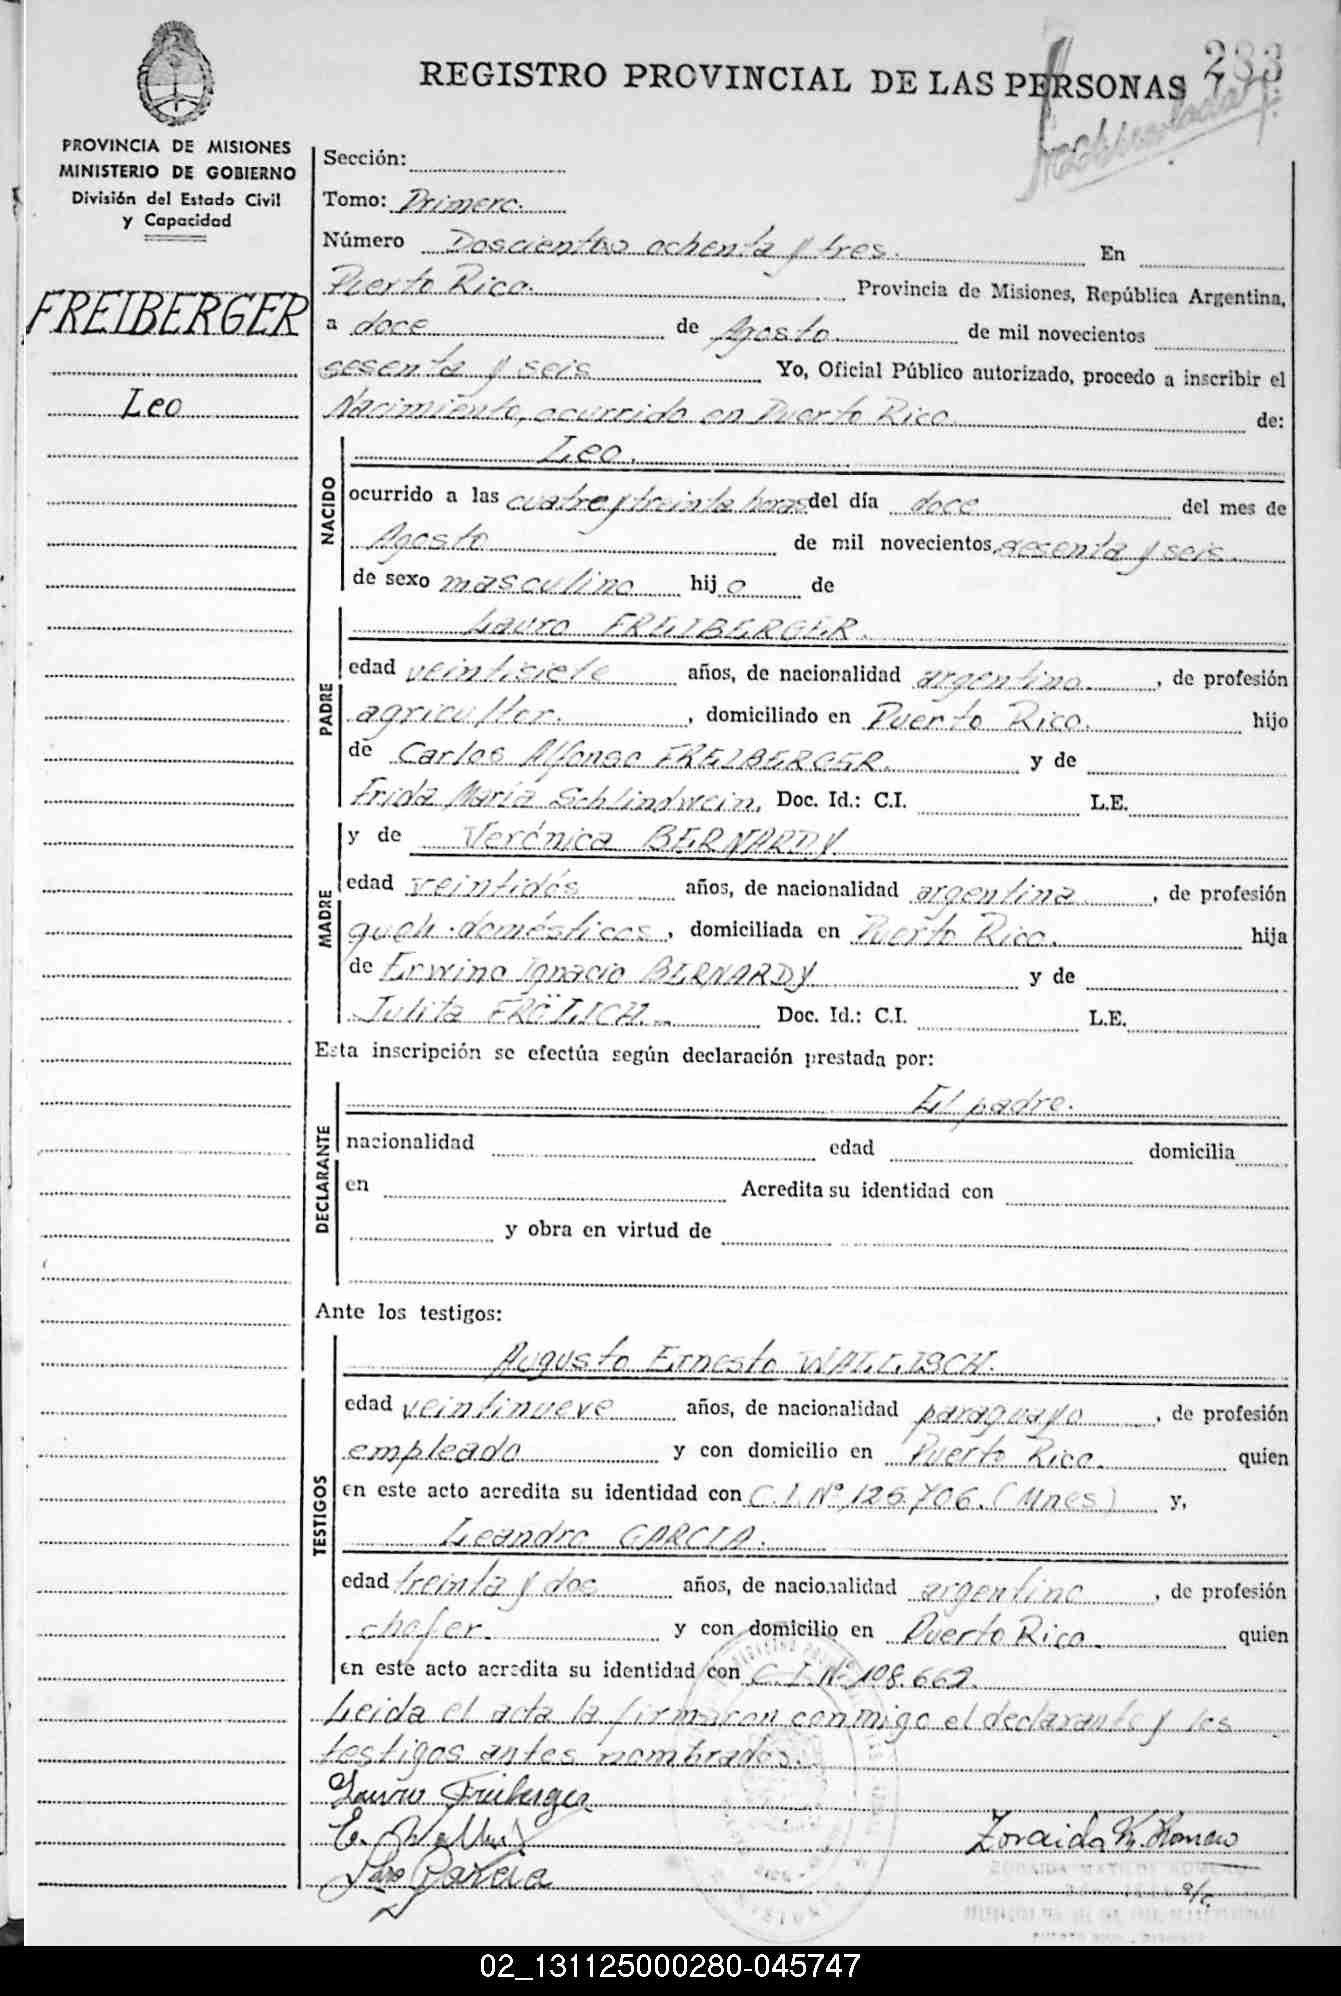 283
REGISTRO PROVINCIAL DE LAS PERSONAS
PROVINCIA DE MISIONES
MINISTERIO DE GOBIERNO
División del Estado Civil
y Capacidad
FREIBERGER
Leo
Sección:
Tomo: Primero.
Número Doscientos ochenta y tres. En
Puerto Rico. Provincia de Misiones, República Argentina,
a doce de Agosto. de mil novecientos
sesenta y seis Yo, Oficial Público autorizado, procedo a inscribir el
Nacimiento, ocurrido en Puerto Rico. de:
NACIDO
Leo.
ocurrido a las cuatro y treinta horas del día doce del mes de
Agosto de mil novecientos sesenta y seis.
de sexo masculino hijo de
PADRE
Lauro FREIBERGER.
edad veintisiete años, de nacionalidad argentino, de profesión
agricultor., domiciliado en Puerto Rico. hijo
de Carlos Alfonso FREIBERGER. y de
Frida María Schlindwein. Doc. Id.: C.I. L.E.
MADRE
y de Verónica BERNARDY
edad veintidós años, de nacionalidad argentina, de profesión
queh. domésticos, domiciliada en Puerto Rico. hija
de Erwino Ignacio BERNARDY y de
Julita FRÖLICH. Doc. Id.: C.I. L.E.
Esta inscripción se efectúa según declaración prestada por:
DECLARANTE
El padre.
nacionalidad edad domicilia
en Acredita su identidad con
y obra en virtud de
Ante los testigos:
TESTIGOS
Augusto Ernesto WALLISCH.
edad veintinueve años, de nacionalidad paraguayo, de profesión
empleado y con domicilio en Puerto Rico. quien
en este acto acredita su identidad con C.I.Nº 125.706. (Mnes) y,
Leandro GARCIA.
edad treinta y dos años, de nacionalidad argentino, de profesión
chofer. y con domicilio en Puerto Rico. quien
en este acto acredita su identidad con C.I.Nº 108.662.
Leida el acta la firmaron conmigo el declarante y los
testigos antes nombrados.
Lauro Freiberger
Garcia
Zoraida M. Romero
ZORAIDA MATILDE ROMERO
02_131125000280-045747